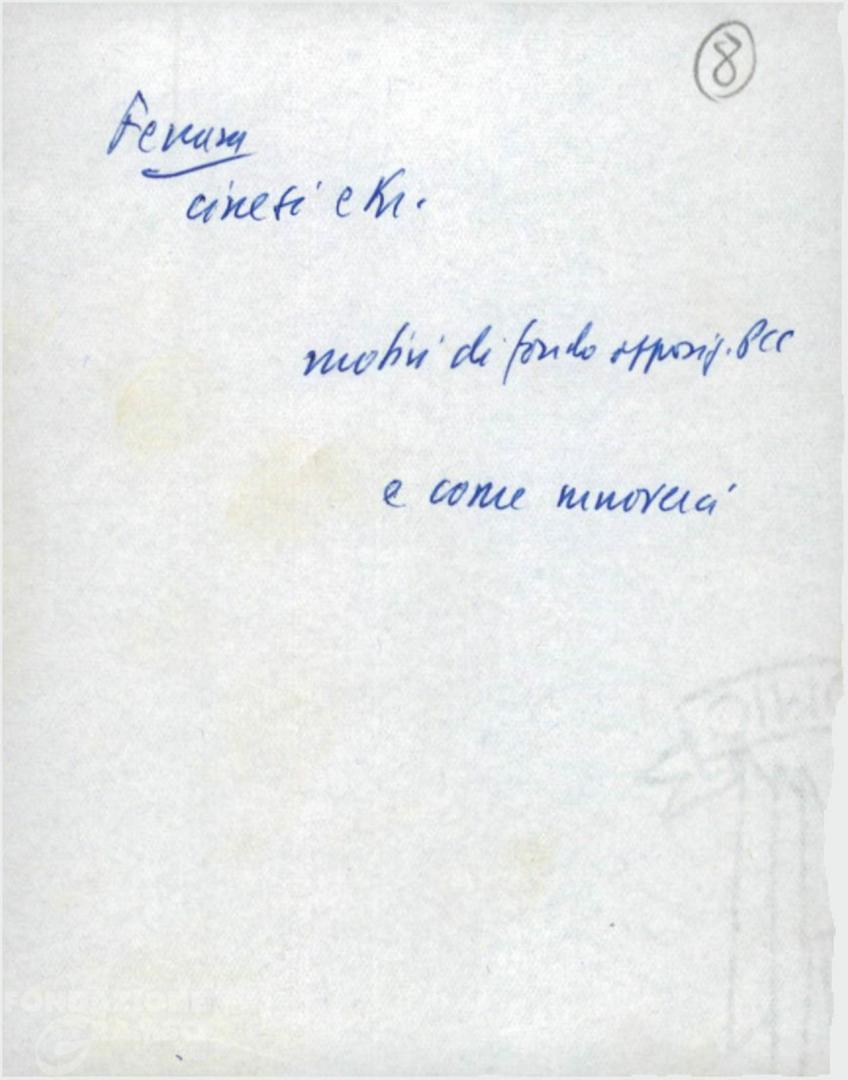 8
Ferrara
cinesi e Kr.
motivi di fondo opposiz. PCC
e come rimoverli
FONDAZIONE